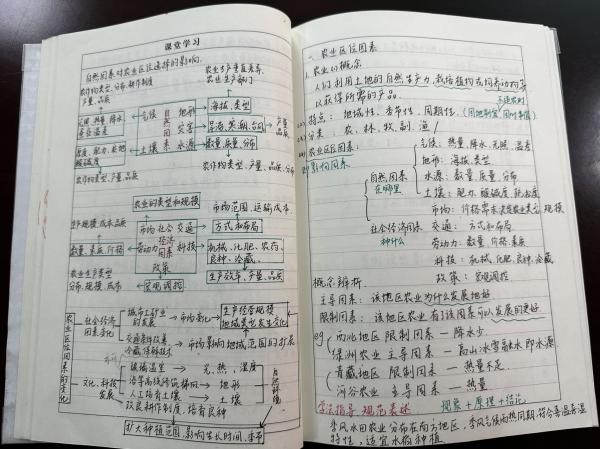 课堂学习
自然因素对农业区位选择的影响
农作物类型、分布、耕作制度
产量、品质
农业生产垂直差异
农业生产部门
光照、热量、降水
昼夜温差
气候
地形
海拔、类型
灾害
旱涝、寒潮、台风
产量
品质
厚度、肥力、质地
酸碱度
土壤
水源
数量、质量、分布
农作物类型、产量、品质
农作物类型、产量、品质、分布
农业的类型和规模
市场范围、运输成本
生产规模、成本、品质
市场
社会经济因素
交通
方式和布局
数量、素质、价格
劳动力
科技
机械、化肥、农药、
良种、冷藏
农业生产类型
分布、规模、成本
政策
宏观调控
生产效率、产量、品质
农业区位因素的变化
社会经济
因素变化
城市工矿业
的发展
市场变化
生产经营规模
地域类型发生变化
交通条件改善
冷藏保鲜技术
市场影响地域范围的扩展
文化、科技
发展
玻璃温室
光、热、湿度
培育高线防筑梯田
地形
人工培育土壤
土壤
改良耕作制度,培育良种
自然环境
扩大种植范围,影响生长时间、季节
一、农业区位因素
1. 农业的概念
人们利用土地的自然生产力,栽培植物或饲养动物等
以获得所需的产品。
不违农时
特点:地域性、季节性、周期性。(因地制宜 因时制宜)
分类:农、林、牧、副、渔
农业区位因素
影响因素
自然因素
在哪里
气候:热量、降水、光照、温差
地形:海拔、类型
水源:数量、质量、分布
土壤:肥力、酸碱度、疏松度
社会经济因素
种什么
市场:价格需求决定农业类型、规模
交通:方式和布局
劳动力:数量、价格、素质
科技:机械、化肥、良种、冷藏
政策:宏观调控
概念辨析.
主导因素:该地区农业为什么发展地好.
限制因素:该地区农业有了该因素可以发展的更好.
eg
西北地区 限制因素 — 降水少
绿洲农业 主导因素 — 高山冰雪融水即水源
青藏地区 限制因素 — 热量不足.
河谷农业 主导因素 — 热量
学法指导 规范表述
现象+原理+结论
季风水田农业分布在南方地区,季风气候雨热同期,符合喜温喜湿
特性,适宜水稻种植